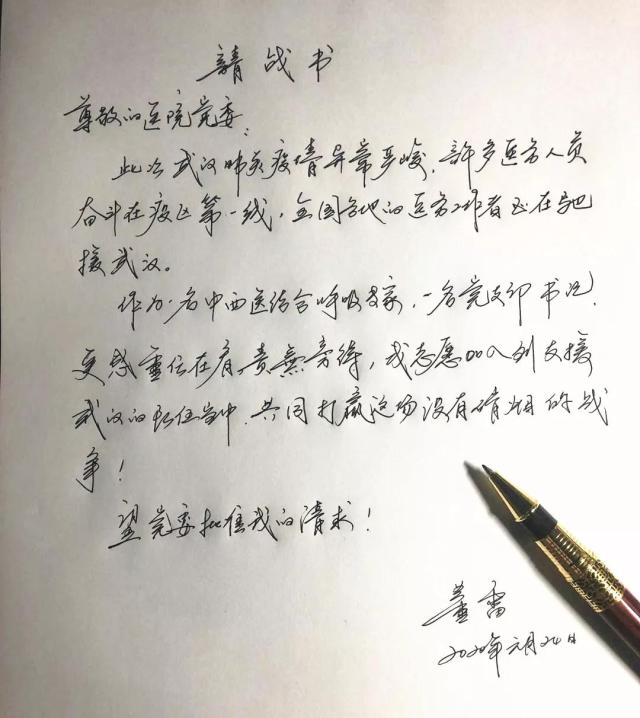 請战书
尊敬的医院党委：
此次武汉肺炎疫情异常严峻，许多医务人员
奋斗在疫区第一线，全国各地的医务工作者正在驰
援武汉。
作为一名中西医结合呼吸专家，一名党支部书记，
更感重任在肩、责無旁待，我志愿加入到支援
武汉的队伍当中，共同打赢这场没有硝烟的战
争！
望党委批准我的请求！
董雷
2020年元月24日